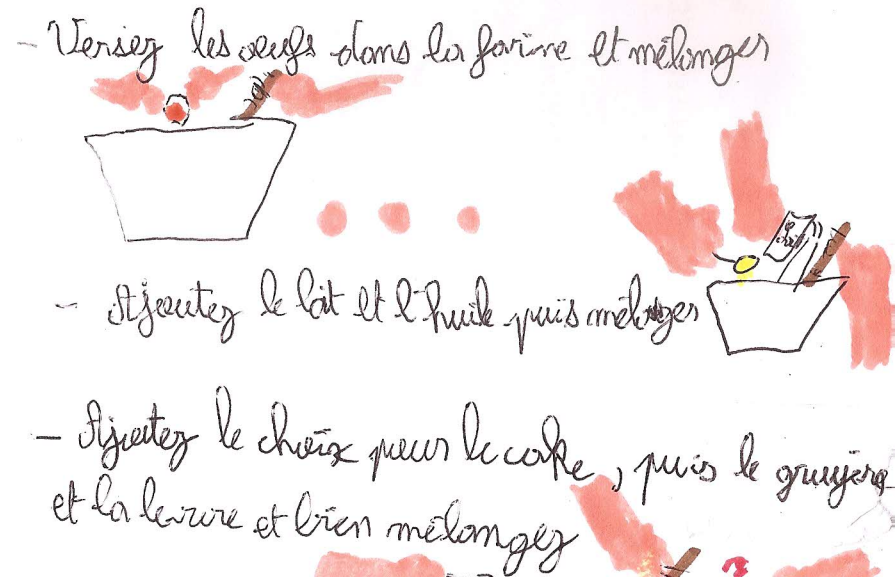 - Versez les oeufs dans la farine et mélanger
- Ajoutez le lait et l'huile puis mélanger
- Ajoutez le choix pour le cake, puis le gruyère
et la levure et bien mélangez